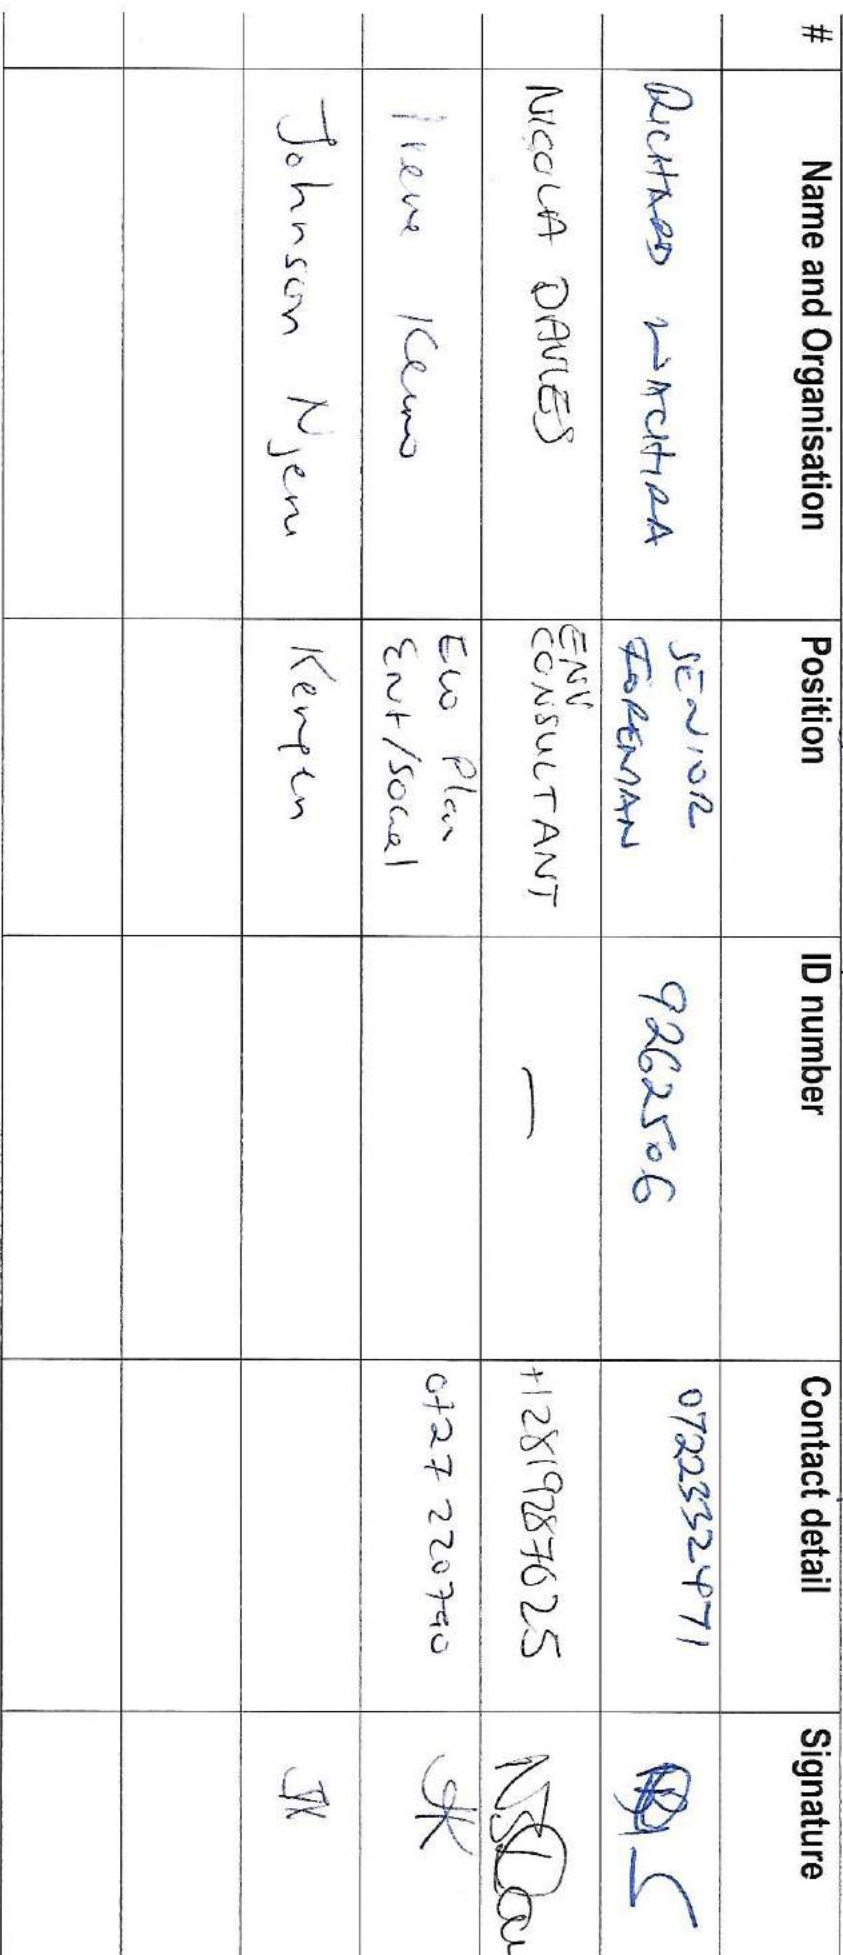 # Name and Organisation Position ID number Contact detail Signature
RICHARD WACHIRA SENIOR FOREMAN 9262506 0722332471
NICOLA DAVIES ENV CONSULTANT — +12819287625
Irene Keino Eco Plan Env/Social 0727 220740 IK
Johnson Njeru Kengen JK